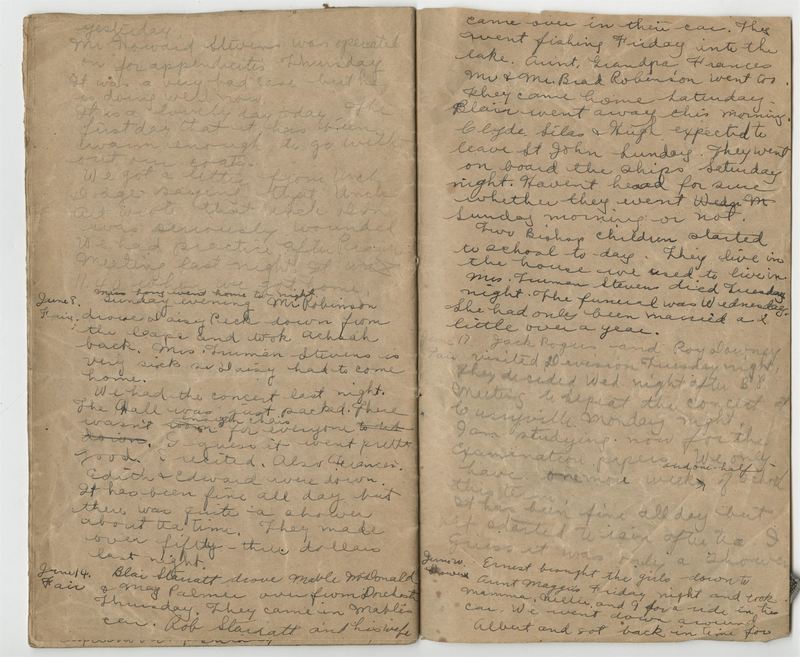 yesterday.
Mr. Howard Stevens was operated
on for appendicitis Thursday
It was a very bad case but he
is doing well now.
It is a lovely day today. The
first day that it has been
warm enough to go with
out our coats.
We got a letter from Unc
saying that Uncle
Art wrote that their son
was seriously wounded
We had practice after Prayer
Meeting last night. It was
when we got home.
Miss Long went home to night
June 8. Sunday evening Mr Robinson
Fair. drove Daisy Peck down from
the Capes and took Achsah
back. Mrs. Truman Stevens is
very sick so Daisy had to come
home.
We had the concert last night.
The Hall was just packed. There
wasn't room enough chairs for everyone to sit
down. I guess it went pretty
good. I recited. Also Frances.
Edith & Edward were down.
It has been fine all day but
there was quite a shower
about tea time. They made
over fifty-three dollars
last night.
June 14. Blair Starratt drove Mable McDonald
Fair & May Palmer over from Dorchester
Thursday. They came in Mable's
car. Rob Starratt and his wife
came over in their car. They
went fishing Friday into the
lake. Aunt, Grandpa Frances
Mr & Mrs. Brad Robinson went too.
They came home Saturday.
Blair went away this morning.
Clyde, Silas & Hugh expected to
leave St John Sunday. They went
on board the ships Saturday
night. Havent heard for sure
whether they went Weds. M
Sunday morning or not.
Two Bishop children started
to school to day. They live in
the house we used to live in.
Mrs. Truman Steven died Tuesday
night. The funeral was Wednesday.
She had only been married a
little over a year.
17. Jack Rogers and Roy Downey
Fair visited Division Tuesday night.
They decided Wed night after B.Y.
Meeting to repeat the concert at
Monday night.
I am studying now for the
examination papers. We only
have one and one-half more weeks of school
this term.
It has been fine all day but
it started to rain after tea. I
guess it was only a shower
June 20. Ernest brought the girls down to
Showers Aunt Maggies Friday night and took
mamma, Lillie, and I for a ride in the
car. We went down around
Albert and got back in time for